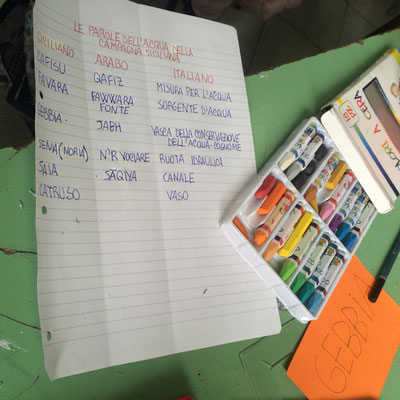 LE PAROLE DELL'ACQUA NELLA
CAMPAGNA SICILIANA
SICILIANO ARABO ITALIANO
CAFISU QAFIZ MISURA PER L'ACQUA
FAVARA FAWWARA SORGENTE D'ACQUA
FONTE
GEBBIA JABH VASCA DELLA CONSERVAZIONE
DELL'ACQUA-COGNOME
SENIA (NORIA) N'R VOCIARE RUOTA IDRAULICA
SAIA SAQIYA CANALE
CATUSO VASO
COLORI A CERA
GEBBIA